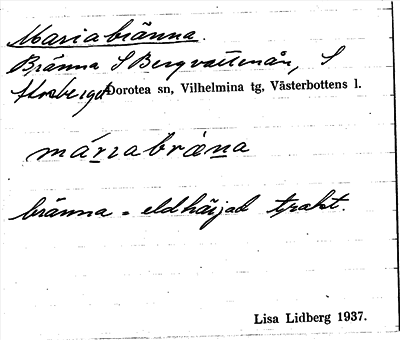 Mariabränna.
Bränna S Bergvattenån, S
Dorotea sn, Vilhelmina tg, Västerbottens l.
márıabräna
bränna = eldhärjad trakt.
Lisa Lidberg 1937.